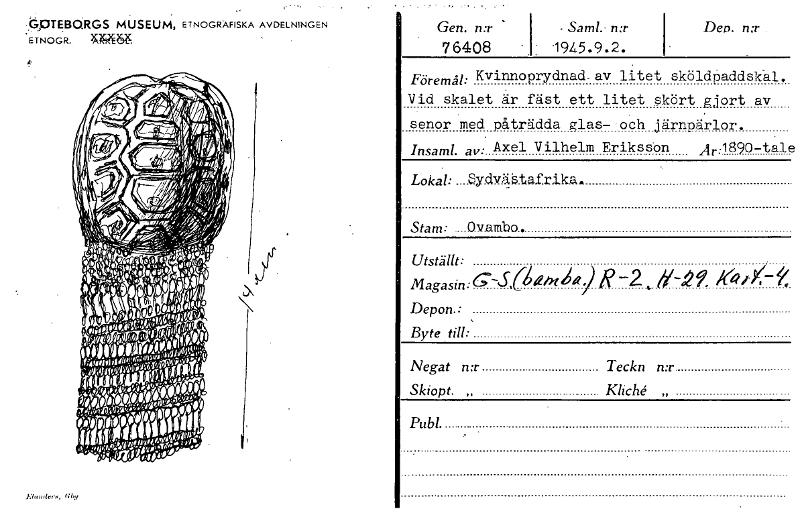 GÖTEBORGS MUSEUM, ETNOGRAFISKA AVDELNINGEN
ETNOGR.
14 cm.
Elanders, Gbg
Gen. n:r Saml. n:r Dep. n:r
76408 1945.9.2.
Föremål: Kvinnoprydnad av litet sköldpaddskal.
Vid skalet är fäst ett litet skört gjort av
senor med påträdda glas- och järnpärlor.
Insaml. av: Axel Vilhelm Eriksson År: 1890-tale
Lokal: Sydvästafrika.
Stam: Ovambo.
Utställt:
Magasin: G-S.(bamba.) R-2. H-29. Kart.-4.
Depon.:
Byte till:
Negat n:r Teckn n:r
Skiopt. „ Kliché „
Publ.